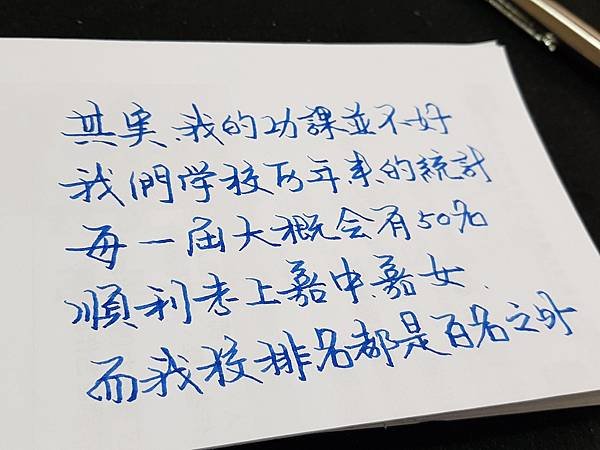 其実、我的功課並不好
我們学校历年来的統計
每一屆大概会有50名
順利考上嘉中、嘉女、
而我校排名都是百名之外